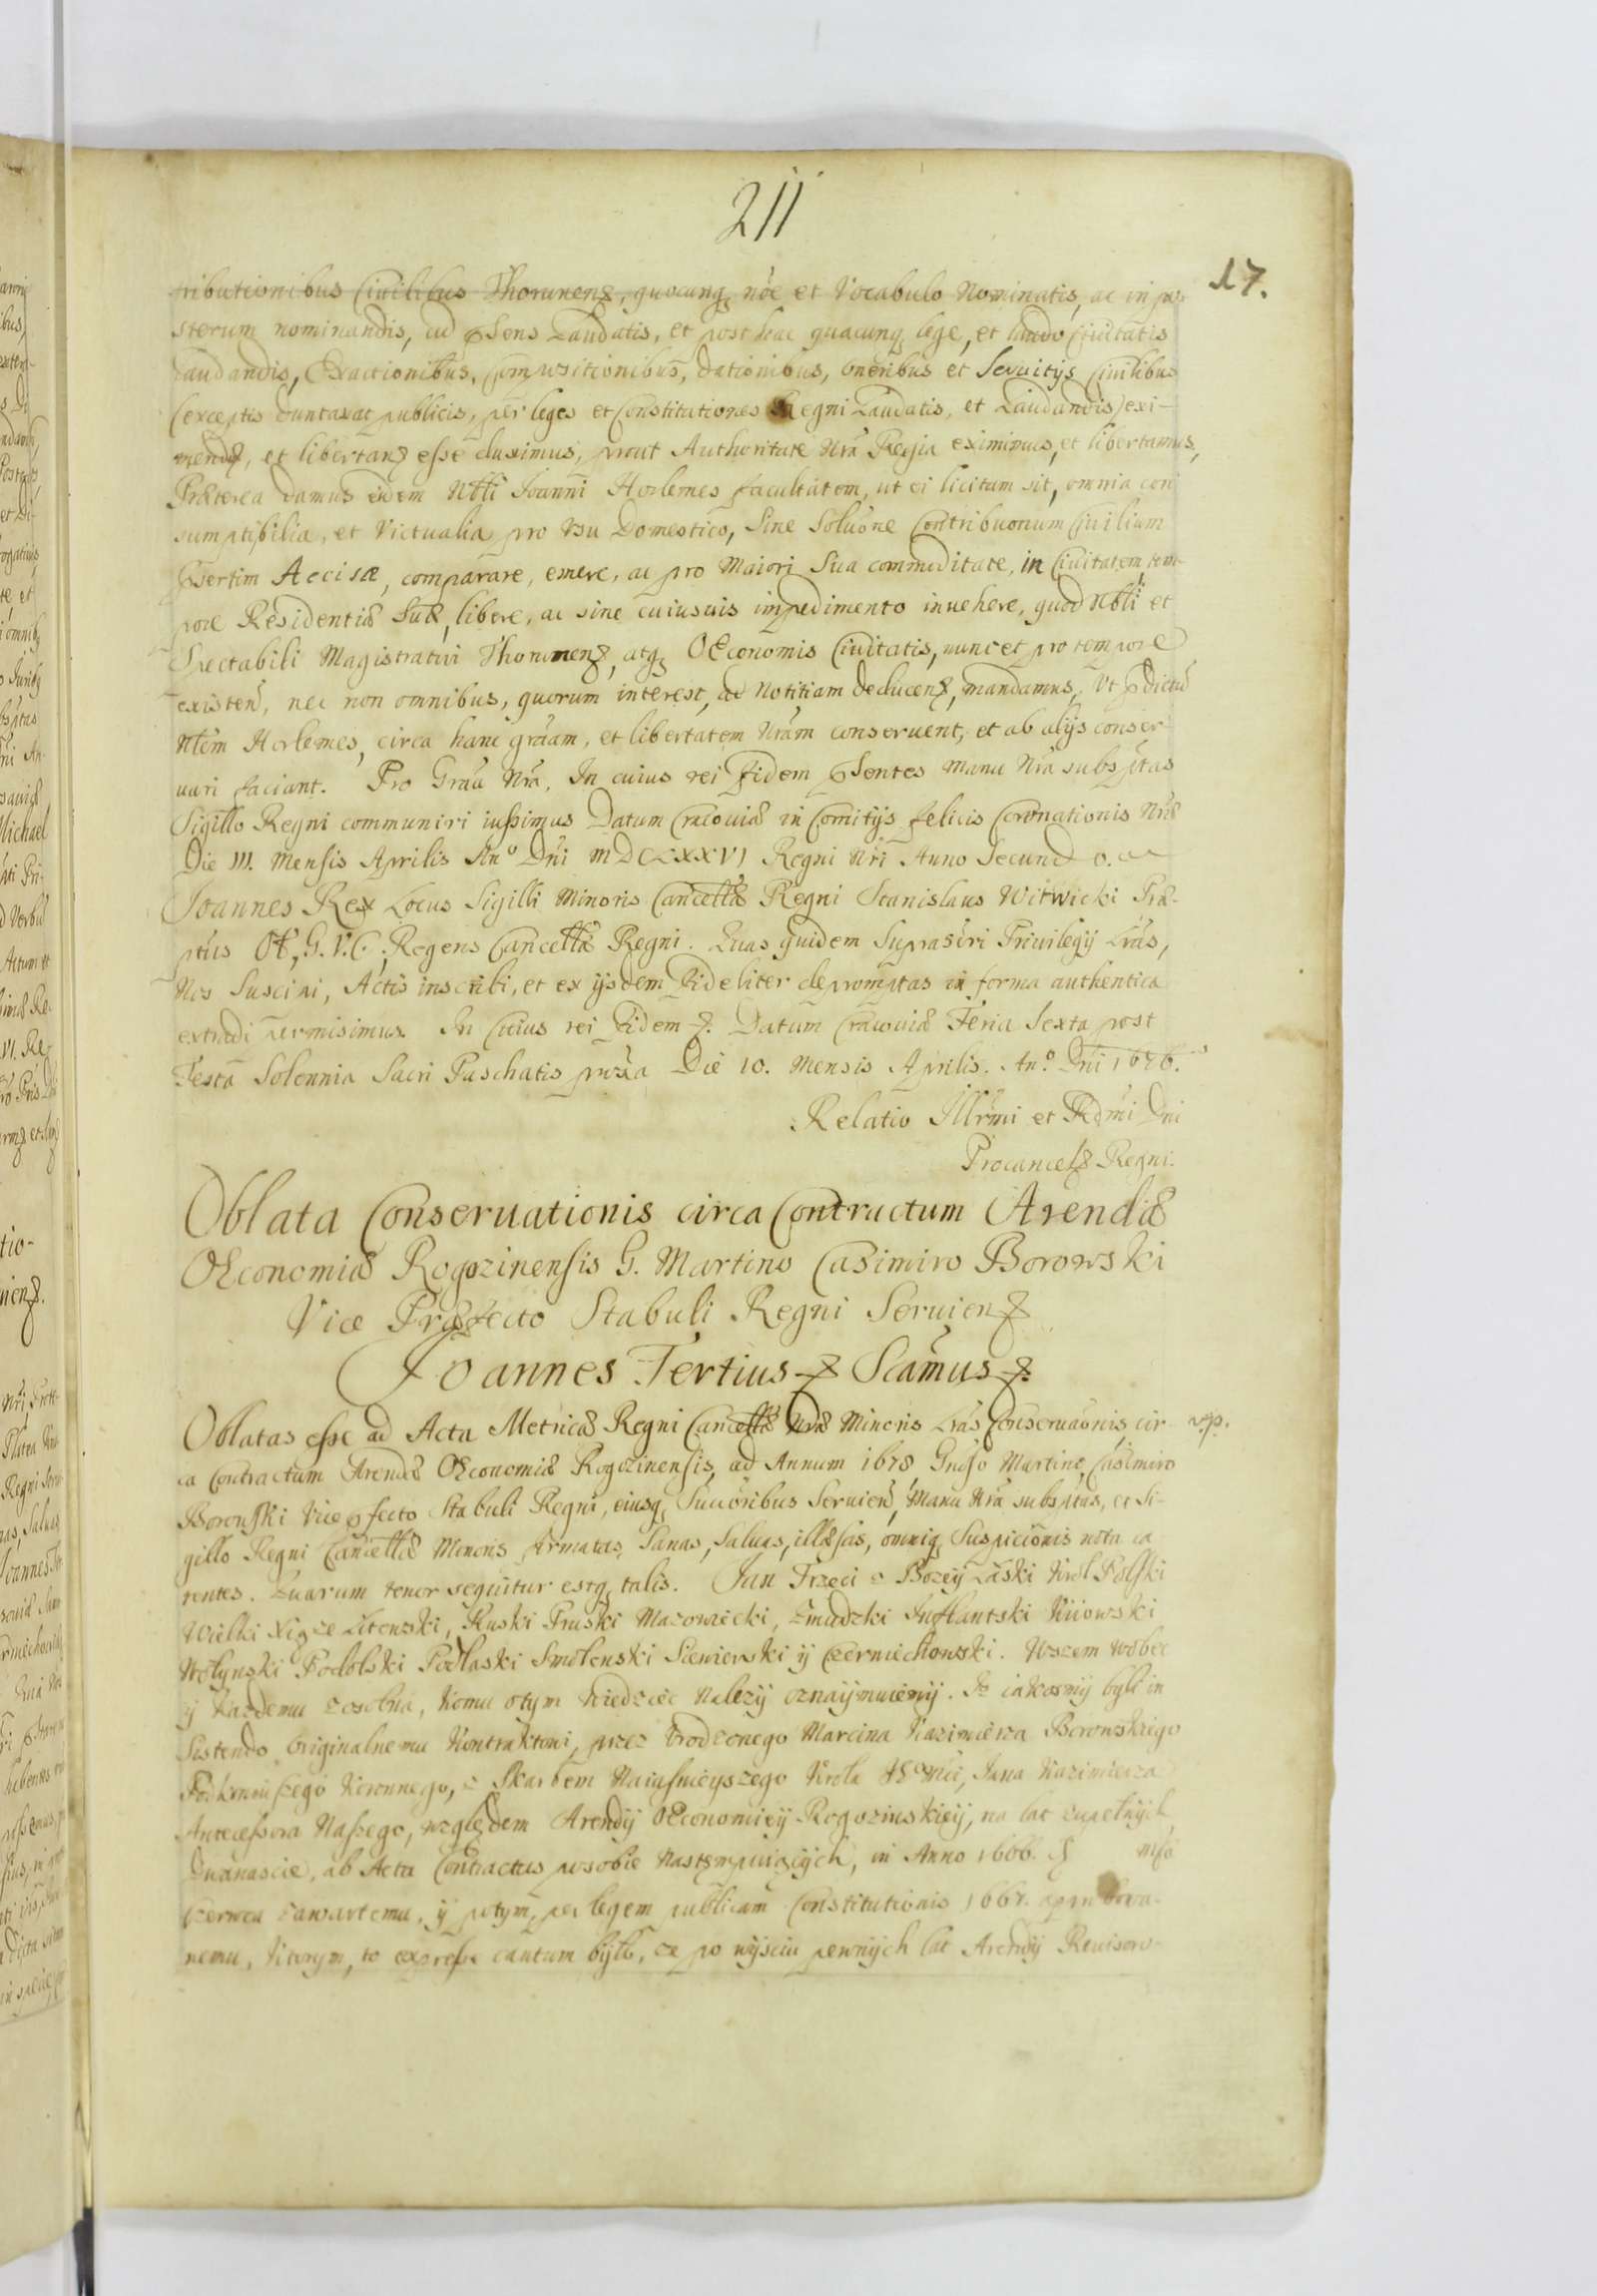 211
17.
tributionibus Ciuilibus Thorunen, quocunq nõe et Vocabulo Nominatis, ac in po
sterum nominandis, ad pñsens Laudatis, et post hac quacunq lege, et laudo Ciuitatis
Laudandis, Exactionibus, Compositionibus, Dationibus, Oneribus et Seruitys Ciuilibus
(exceptis duntaxat publicis, per leges et Constitutiones Regni Laudatis, et Laudandis) exi-
mend, et libertand esse duximus, prout Authoritate Nrã Regia eximimus, et libertamus,
Præterea Damus eidem Nbli Joanni Horlemes facultatem, ut ei licitum sit, omnia con
sumptibilia, et Victualia pro Vsu Domestico, Sine Soluõne Contribuõnum Ciuilium
Psertim Accisæ, comparare, emere, ac pro Maiori Sua commoditate, in Ciuitatem tem-
pore Residentiæ Suæ, libere, ac sine cuiusuis impedimento inuehere, quod Nbli et
Spectabili Magistratui Thorunen, atq OEconomis Ciuitatis, nunc et pro tempore
existen, nec non omnibus, quorum interest, ad Notitiam deducen, mandamus, Vt pdictũ
Nblem Horlemes, circa hanc grãam, et libertatem Nrãm conseruent, et ab alijs conser-
uari faciant. Pro Grãa Nrã, In cuius rei Fidem pSentes Manu Nrã subsptas
Sigillo Regni communiri iussimus Datum Cracouiæ in Comitijs felicis Coronationis Nræ
Die III. Mensis Aprilis Anº Dñi MDCLXXVI Regni Nri Anno Secundo.
Joannes Rex Locus Sigilli Minoris Cancellæ Regni Stanislaus Witwicki Præ-
ptus Regens Cancellæ Regni. Quas quidem Suprascri Priuilegij Lrãs,
Nos Suscipi, Actis inscribi, et ex ijsdem Fideliter depromptas in forma authentica
extradi permisimus. In Cuius rei Fidem. Datum Cracouiæ Feria Sexta post
Festa Solennia Sacri Paschatis proxia Die 10. Mensis Aprilis. Anº. Dñi 1676.
Relatio Illrmi et Rdmi Dni
Procancel Regni.
Oblata Conseruationis circa Contractum Arendæ
OEconomiæ Rogozinensis G. Martino Casimiro Borowski
Vice Præfecto Stabuli Regni Seruien
Joannes Tertius Scamus
Oblatas esse ad Acta Metricæ Regni Cancellæ Nræ Minoris Lrãs Conseruaõnis, cir-
ca Contractum Arendæ OEconomiæ Rogozinensis, ad Annum 1678 Gnõso Martino Casimiro
Borowski Vice pfecto Stabuli Regni, eiusq Succoribus Seruien, Manu Nrã subsptas, et Si-
gillo Regni Cancellæ Minoris firmatas, Sanas, Saluas, illæsas, omniq Suspicionis nota ca
rentes. Quarum tenor sequitur estq talis. Jan Trzeci z Bozey Łaski Krol Polski
Wielki Xiąze Litewski, Ruski Pruski Mazowiecki, Zmudzki Inflantski Kiiowski
Wołynski Podolski Podlaski Smolenski Siewierski ÿ Czerniechowski. Wszem wobec
ÿ Kazdemu zosobna, Komu otym Wiedziec Nalezÿ oznaÿmuiemÿ. Iz iakosmÿ byli in
Sistendo originalnemu Kontraktowi, przez Vrodzonego Marcina Kazimierza Borowskiego
Podkoniuszego Koronnego, z Skarbem Naiasnieyszego Krola Je Mci, Jana Kazimierza
Antecessora Naszego, względem Arendÿ OEconomieÿ Rogozinskieÿ, na lat zupełnÿch
Dwanascie, ab Acta Contractus posobie Nastęmpuiącÿch, in Anno 1666.
Czerwca zawartemu, ÿ potym, per legem publicam Constitutionis 1667. approbowa-
nemu, Ktorym, to expresse cautum bÿło, ze po wÿsciu pewnÿch lat Arendÿ